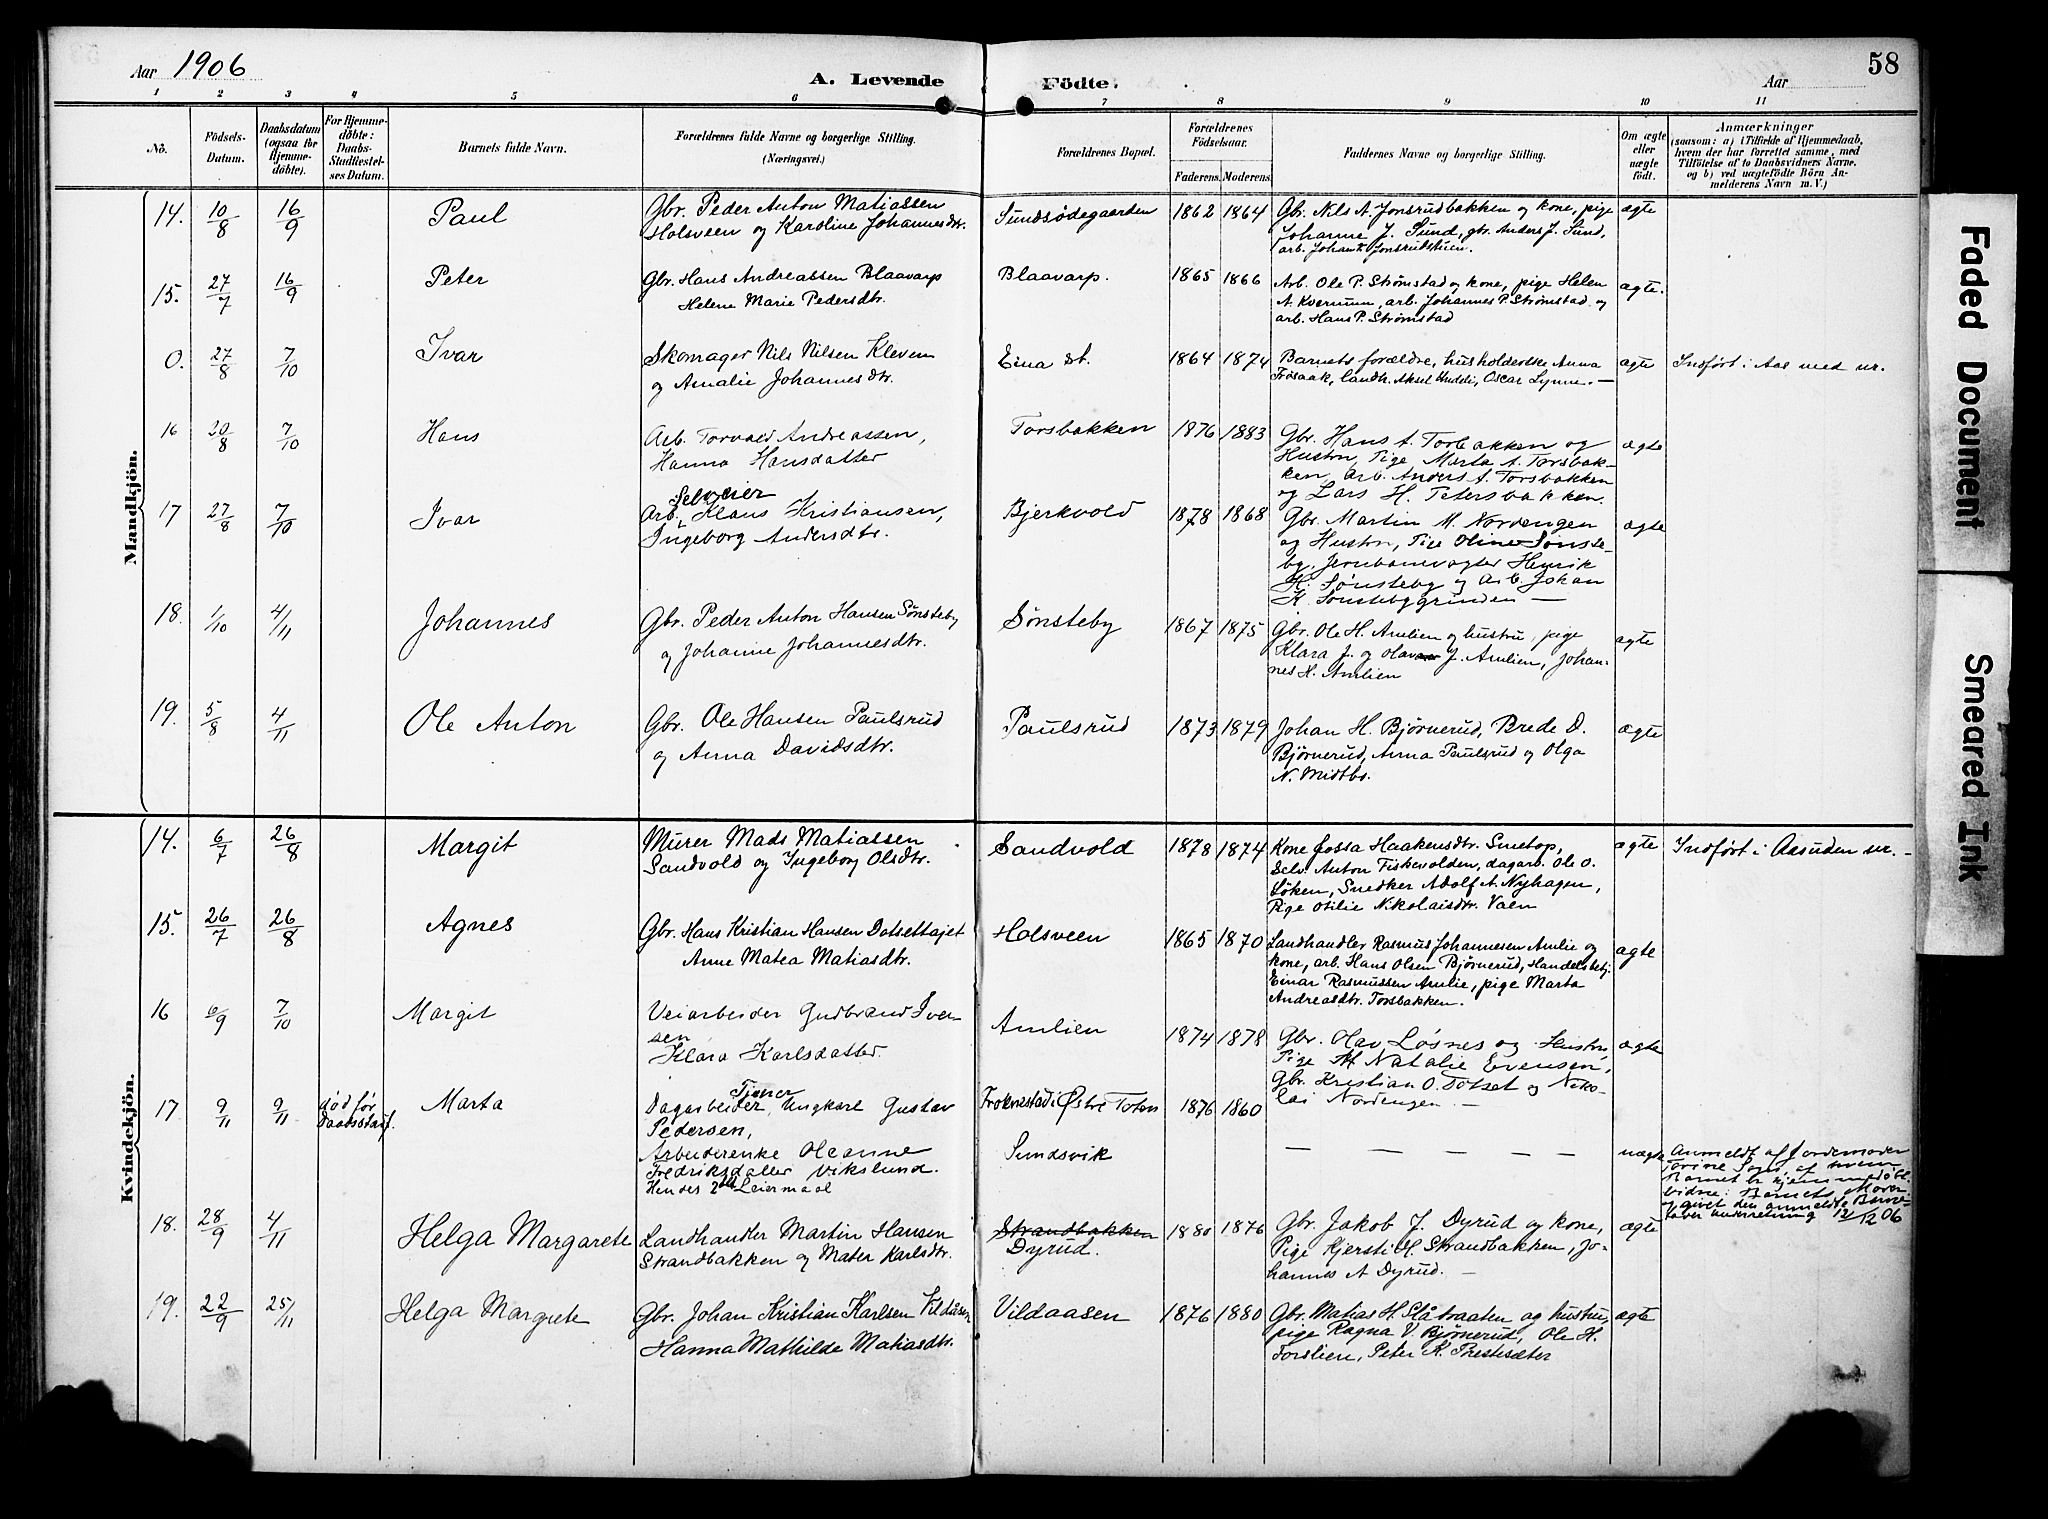 Aar 1906
A. Levende Födte.
Aar
58
1 2 3 4 5 6 7 8 9 10 11
No. Födsels-Datum. Daabsdatum (ogsaa for Hjemmedöbte). For Hjemmedöbte: Daabs-Stadfæstelses Datum. Barnets fulde Navn. Forældrenes fulde Navne og borgerlige Stilling. (Næringsvei.) Forældrenes Bopæl. Forældrenes Födselsaar. Faderens. Moderens. Faddernes Navne og borgerlige Stilling. Om ægte eller uægte födt. Anmærkninger (saasom: a) i Tilfælde af Hjemmedaab, hvem der har forrettet samme, med Tilföielse af to Daabsvidners Navne, og b) ved uægtefödte Börn Anmelderens Navn m. V.)
Mandkjön.
14. 10/8 16/9 Paul
Gbr. Peder Anton Matiassen
Holsveen og Karoline Johannesdtr.
Sundsødegaarden 1862 1864
Gbr. Nils A. Jonsrudbakken og kone, pige
Johanne J. Sund, gbr. Anders J. Sund,
arb. Johan Jonsrudstuen.
ægte
15. 27/7 16/9 Peter
Gbr. Hans Andreassen Blaavarp
Helene Marie Pedersdtr.
Blaavarp. 1865 1866
Arb. Ole P. Strømstad og kone, pige Helen
A. Kvernum, arb. Johannes P. Strømstad og
arb. Hans P. Strømstad
ægte.
0. 27/8 7/10 Ivar
Skomager Nils Nilsen Kleven
og Amalie Johannesdtr.
Eina st. 1864 1874
Barnets forældre, husholderske Anna
Frøsaak, landh. Aksel Huddi, Oscar Lynne. —
ægte Indført i Aas med nr.
16 20/8 7/10 Hans
Arb. Torvald Andreassen,
Hanna Hansdatter
Torsbakken 1876 1883
Gbr. Hans A. Torbakken og
Hustru, Pige Marta A. Torsbak-
ken, Arb. Anders A. Torsbakken
og Lars H. Petersbakken.
ægte
17 27/8 7/10 Ivar
Selveier
Arb. Klaus Kristiansen,
Ingeborg Andersdtr.
Bjerkvold 1878 1868
Gbr. Martin M. Nordengen
og Hustru, Pige Oline Sønste-
by, Jernbanevogter Henrik
H. Sønsteby og Arb. Johan
K. Sønstebygrinden —
ægte
18. 1/10 4/11 Johannes
Gbr. Peder Anton Hansen Sønsteby
og Johanne Johannesdtr.
Sønsteby 1867 1875
Gbr. Ole H. Amlien og hustru, pige
Klara J. og Olav J. Amlien, Johan-
nes H. Amlien
ægte
19. 5/8 4/11 Ole Anton
Gbr. Ole Hansen Paulsrud
og Anna Davidsdtr.
Paulsrud 1873 1879
Johan H. Bjørnerud, Brede D.
Bjørnerud, Anna Paulsrud og Olga
N. Midtbø.
ægte
Kvindekjön.
14. 6/7 26/8 Margit
Murer Mads Matiassen
Sandvold og Ingeborg Olsdtr.
Sandvold 1878 1874
Kone Jossa Haakensdtr. Smetop,
Selv. Anton Fiskevolden, dagarb. Ole O.
Løken, Snedker Adolf A. Nyhagen,
Pige Otilie Nikolaisdtr. Vaen
ægte Indført i Aasuden nr. -
15. 26/7 26/8 Agnes
Gbr. Hans Kristian Hansen Dotsethajet
Anne Matea Matiasdtr.
Holsveen 1865 1870
Landhandler Rasmus Johannesen Amlie og
kone, arb. Hans Olsen Bjørnerud, Handelsbetj.
Einar Rasmussen Amlie, pige Marta
Andreasdtr. Torsbakken.
ægte
16 6/9 7/10 Margit
Veiarbeider Gudbrand Iver-
sen
Klara Karlsdatter.
Amlien 1874 1878
Gbr. Olav Løsnes og Hustru,
Pige Natalie Evensen,
Gbr. Kristian O. Totset og Niko-
lai Nordengen —
ægte
17. 9/11 9/11 død før Daabsstadf. Marta
Tjener
Dagarbeider, Ungkarl Gustav
Pedersen,
Arbeiderenke Oleanne
Fredriksdatter Vikslund.
Hendes 2det Leiermaal
Froknestad i Østre Toten 1876 1860
Sundsvik
— — — — — —
uægte Anmeldt af Jordemoder
Torine Sand, af hvem
Barnet er hjemmedøbt.
vidne: Barnets Moder.
12/12 06
18. 28/9 4/11 Helga Margarete
Landhandler Martin Hansen
Strandbakken og Matea Karlsdtr.
Strandbakken
Dyrud. 1880 1876
Gbr. Jakob J. Dyrud og kone,
Pige Kjersti H. Strandbakken, Jo-
hannes A Dyrud. —
ægte
19. 22/9 25/11 Helga Margrete
Gbr. Johan Kristian Karlsen Vildåsen
Hanna Mathilde Matiasdtr.
Vildaasen 1876 1880
Gbr. Matias H. Slåtraaten og hustru,
pige Ragna V. Bjørnerud, Ole H.
Forslien, Peter K. Prestesæter
ægte
Faded Document
Smeared Ink